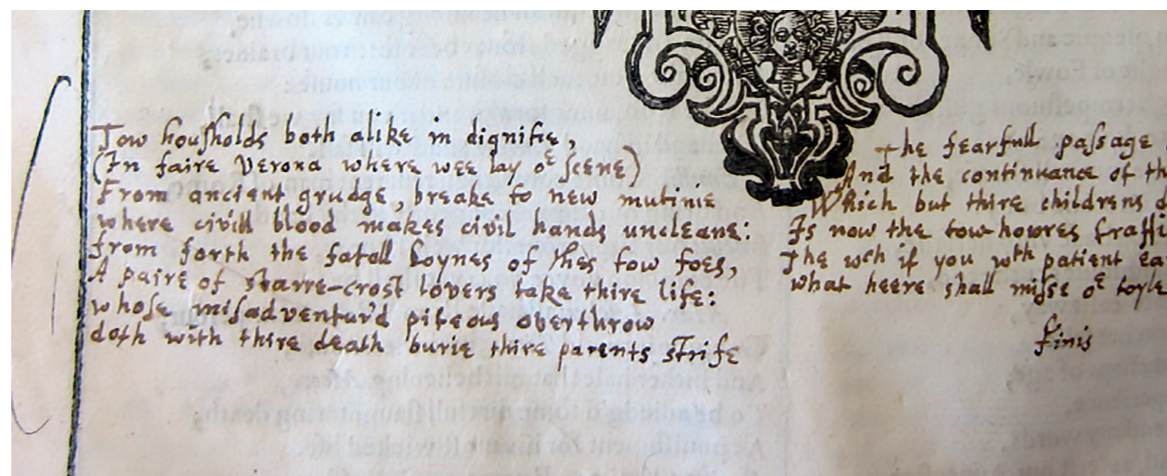 Tow housholds both alike in dignitie,
(In faire Verona where wee lay oe scene)
From ancient grudge, breake to new mutinie
where civill blood makes civil hands uncleane:
from forth the fatall loynes of thes tow foes,
A paire of starre-crost lovers take thire life:
whose misadventur'd piteous overthrow
doth with thire death burie thire parents strife
The fearfull passage
And the continuance of th
Which but thire childrens d
Is now the tow-howres traffi
The wch if you wth patient ea
what heere shall misse oe toyle
finis